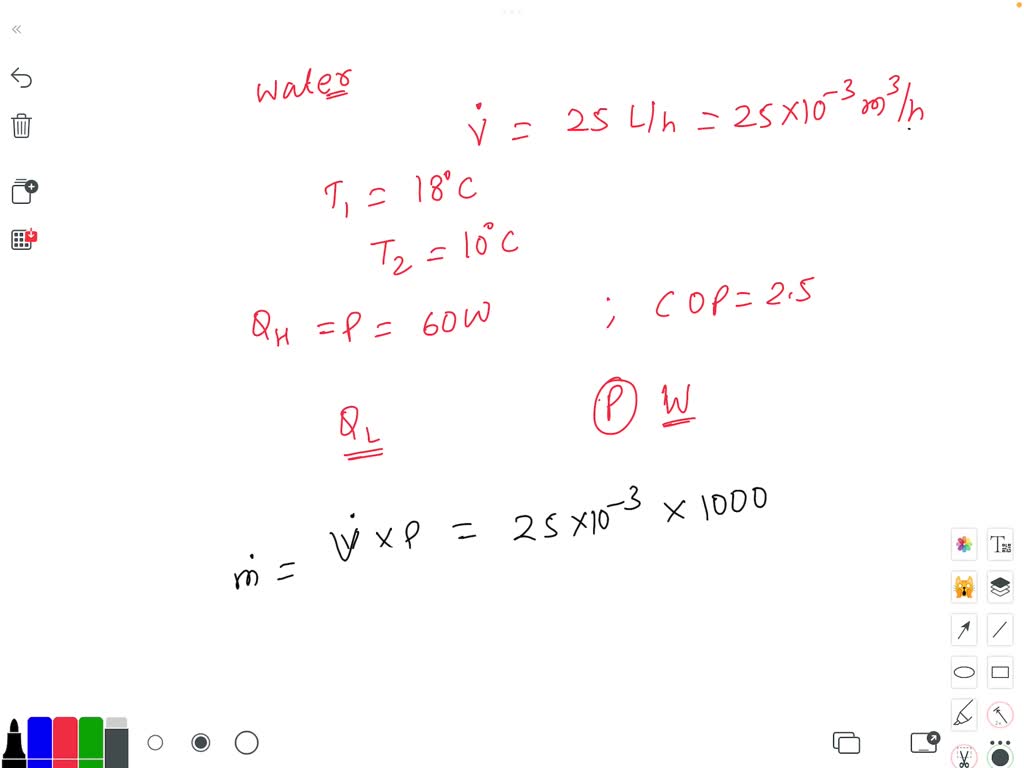 water
V̇ = 25 L/h = 25×10⁻³ m³/h
T₁ = 18°C
T₂ = 10°C
Q_H = P = 60W ; COP = 2.5
Q_L P W
ṁ = V̇ × ρ = 25×10⁻³ × 1000